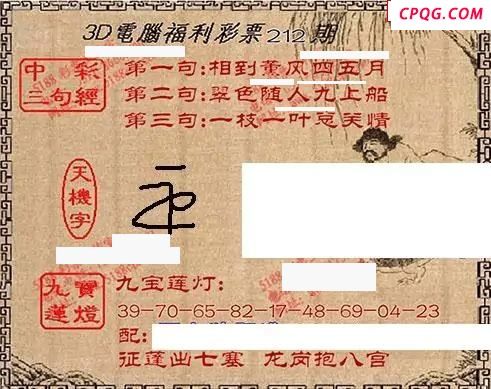 CPQG.COM
3D電腦福利彩票212期
中彩三句經
第一句:相到薰风四五月
第二句:翠色随人九上船
第三句:一枝一叶总关情
天機字
九寶蓮燈
九宝莲灯:
39-70-65-82-17-48-69-04-23
配:
征蓬出七塞 龙岗抱八宫